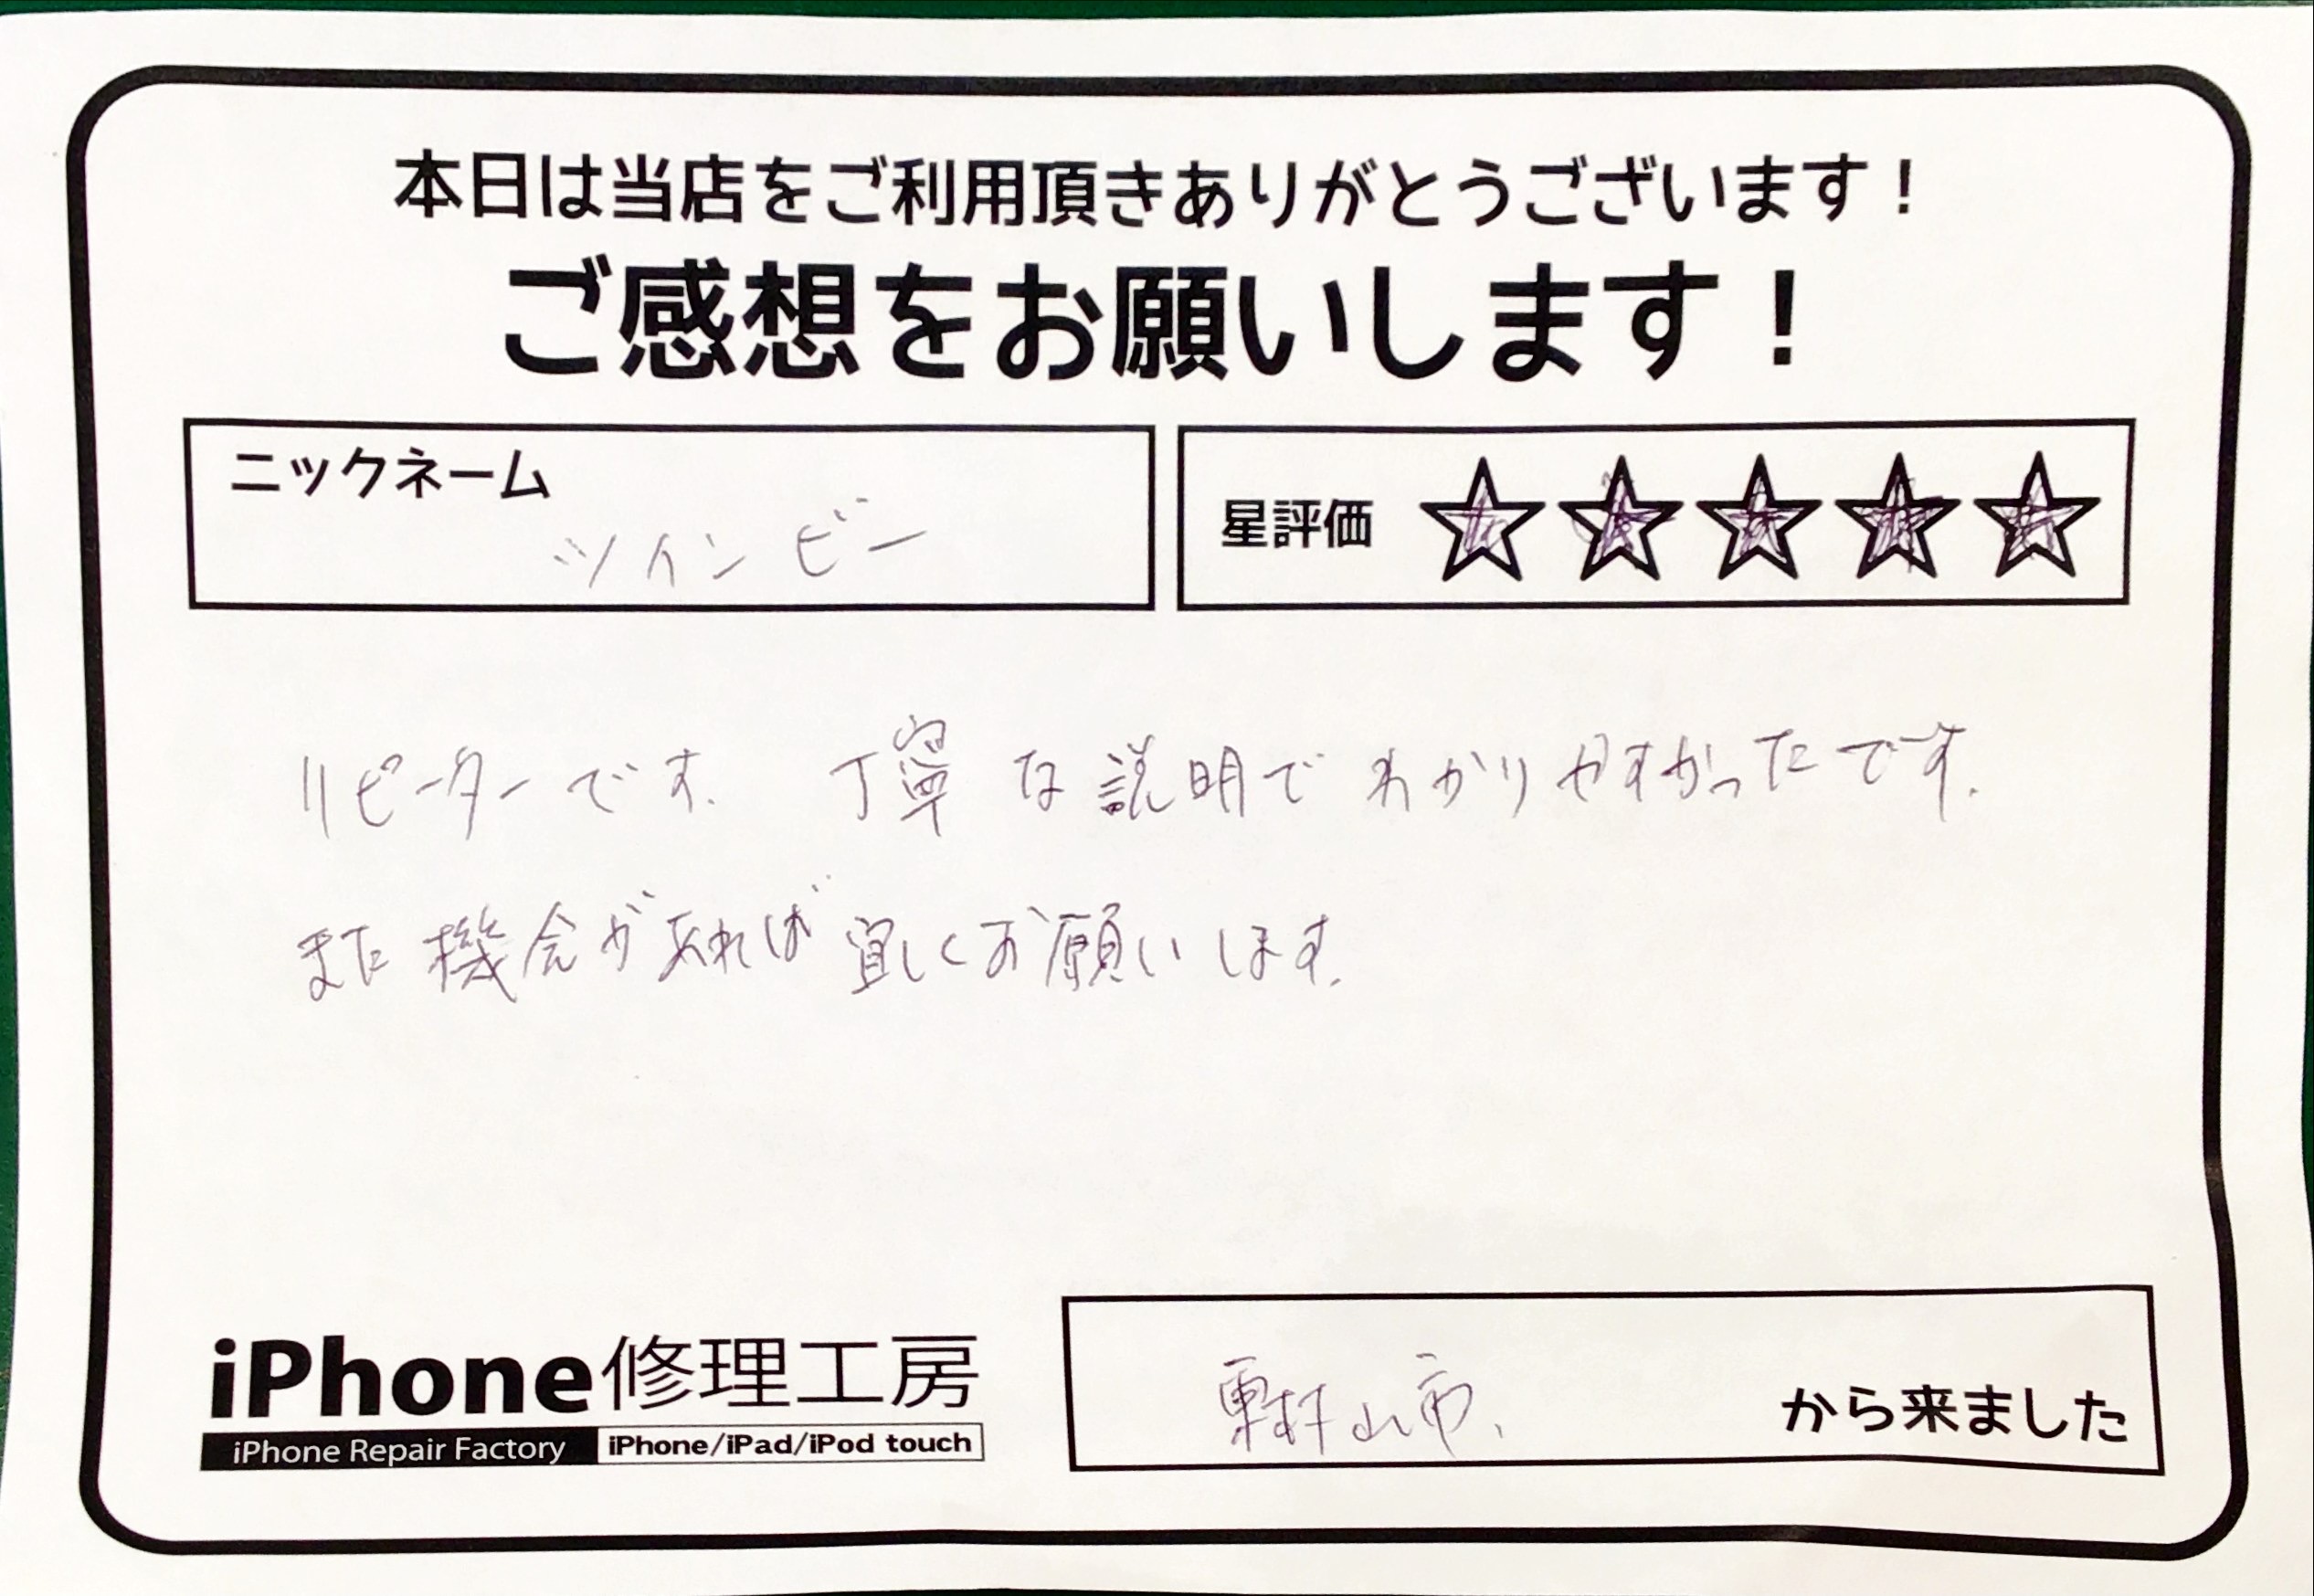 本日は当店をご利用頂きありがとうございます！
ご感想をお願いします！
ニックネーム
ツインビー
星評価 ☆☆☆☆☆
リピーターです. 丁寧な説明でわかりやすかったです.
また機会があれば宜しくお願いします.
iPhone修理工房
iPhone Repair Factory iPhone/iPad/iPod touch
東村山市.
から来ました